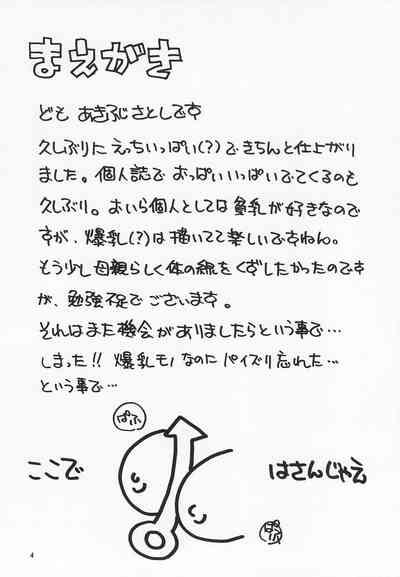 まえがき
ども あきふじさとしです
久しぶりに えっちいっぱい(?)で きちんと仕上がり
ました。個人誌で おっぱいいっぱいでてくるのも
久しぶり。おいら個人としては 貧乳が好きなので
すが、爆乳(?)は描いてて楽しいですねん。
もう少し母親らしく体の線をくずしたかったのです
が、勉強不足でございます。
それはまた機会がありましたらという事で…
しまった!! 爆乳モノなのに パイズリ忘れた…
という事で…
ぱふ
ここで
はさんじゃえ
4